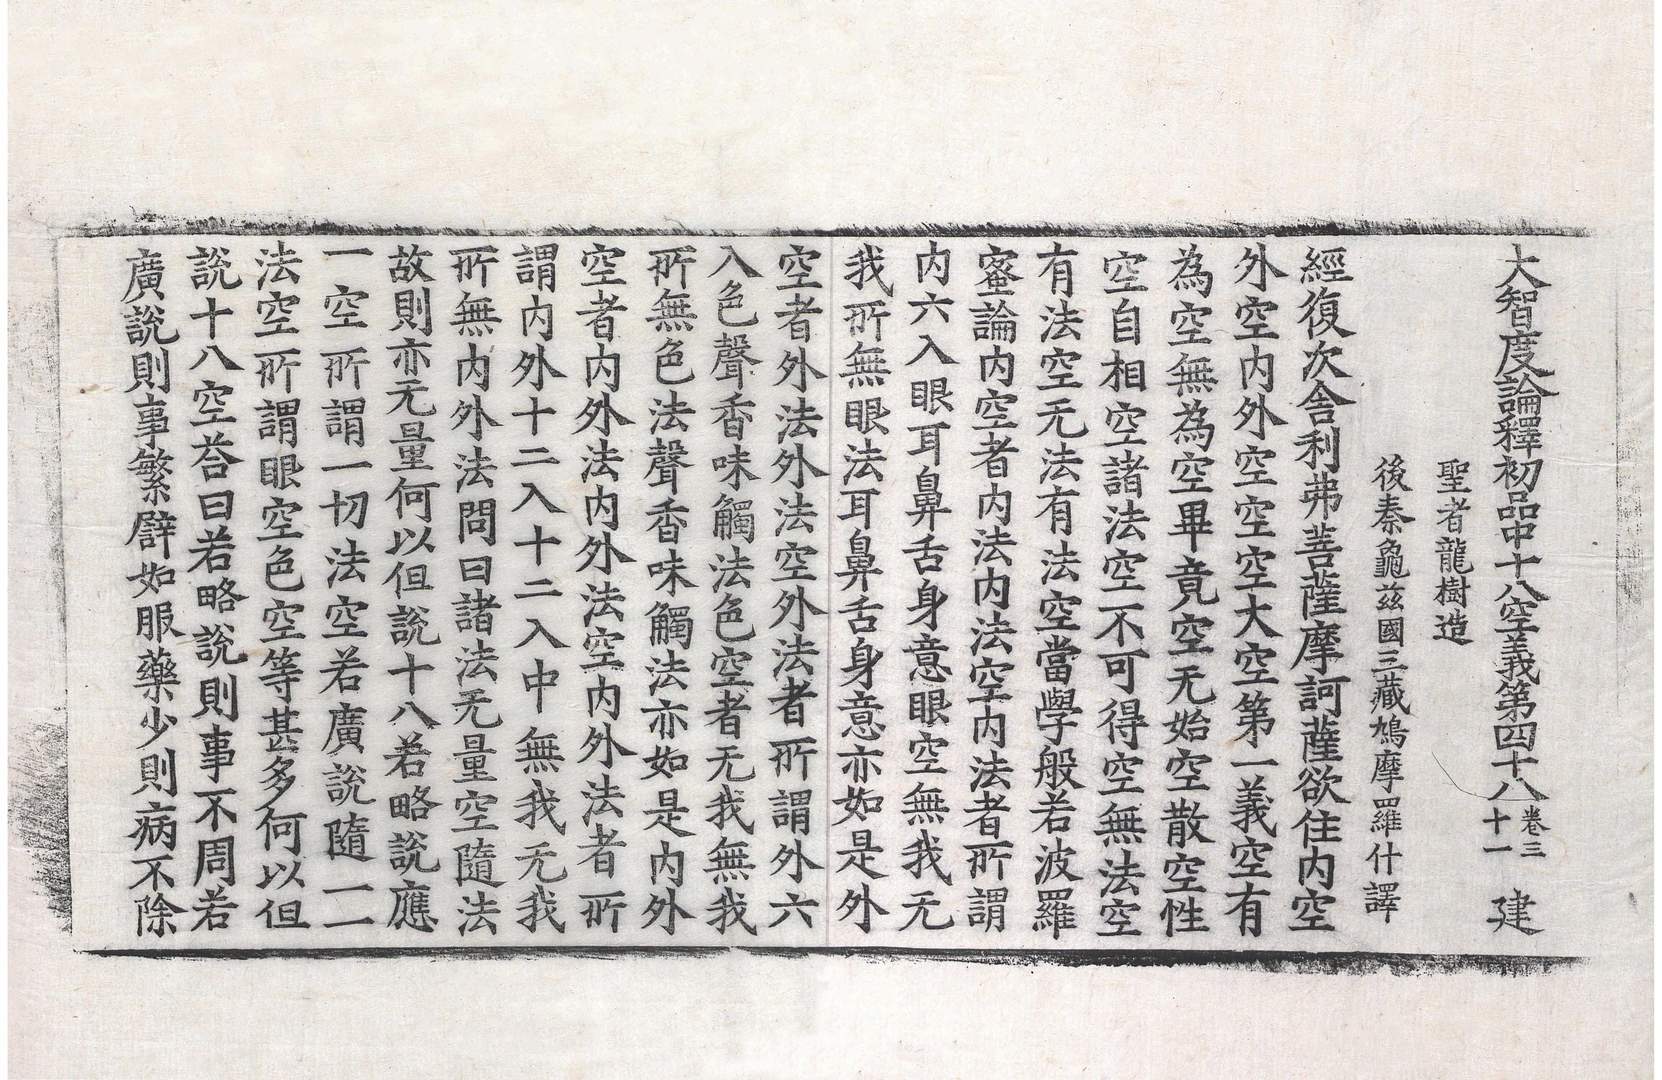 大智度論釋初品中十八空義第四十八 卷三十一 建
聖者龍樹造
後秦龜茲國三藏鳩摩羅什譯
經復次舍利弗菩薩摩訶薩欲住內空
外空內外空空空大空第一義空有
為空無為空畢竟空无始空散空性
空自相空諸法空不可得空無法空
有法空无法有法空當學般若波羅
蜜論內空者內法內法空內法者所謂
內六入眼耳鼻舌身意眼空無我无
我所無眼法耳鼻舌身意亦如是外
空者外法外法空外法者所謂外六
入色聲香味觸法色空者无我無我
所無色法聲香味觸法亦如是內外
空者內外法內外法空內外法者所
謂內外十二入十二入中無我无我
所無內外法問曰諸法无量空隨法
故則亦无量何以但說十八若略說應
一空所謂一切法空若廣說隨一一
法空所謂眼空色空等甚多何以但
說十八空荅曰若略說則事不周若
廣說則事繁譬如服藥少則病不除